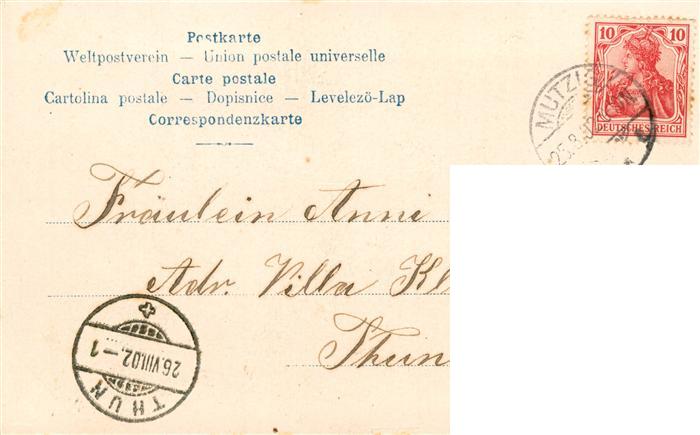 Postkarte
Weltpostverein – Union postale universelle
Carte postale
Cartolina postale – Dopisnice – Levelező-Lap
Correspondenzkarte
10 10
DEUTSCHES REICH
MUTZIG
25.8.
Fräulein Anni
Adr. Villa
Thun
26.VIII.02.–1
THUN